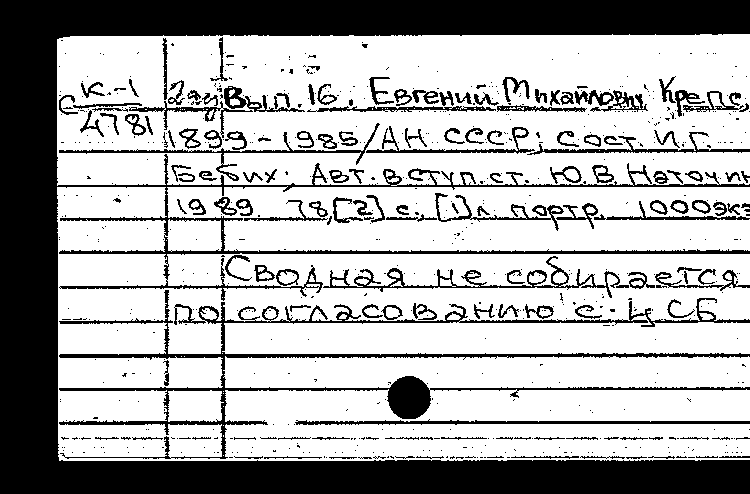 К-1
С 4781
2 яз Вып. 16. Евгений Михайлович Крепс,
1899-1985/АН СССР; Сост. И.Г.
Бебих; Авт. вступ. ст. Ю.В. Наточин
1989. 78,[2] с., [1] л. портр. 1000экз
Сводная не собирается
по согласованию с ЦСБ